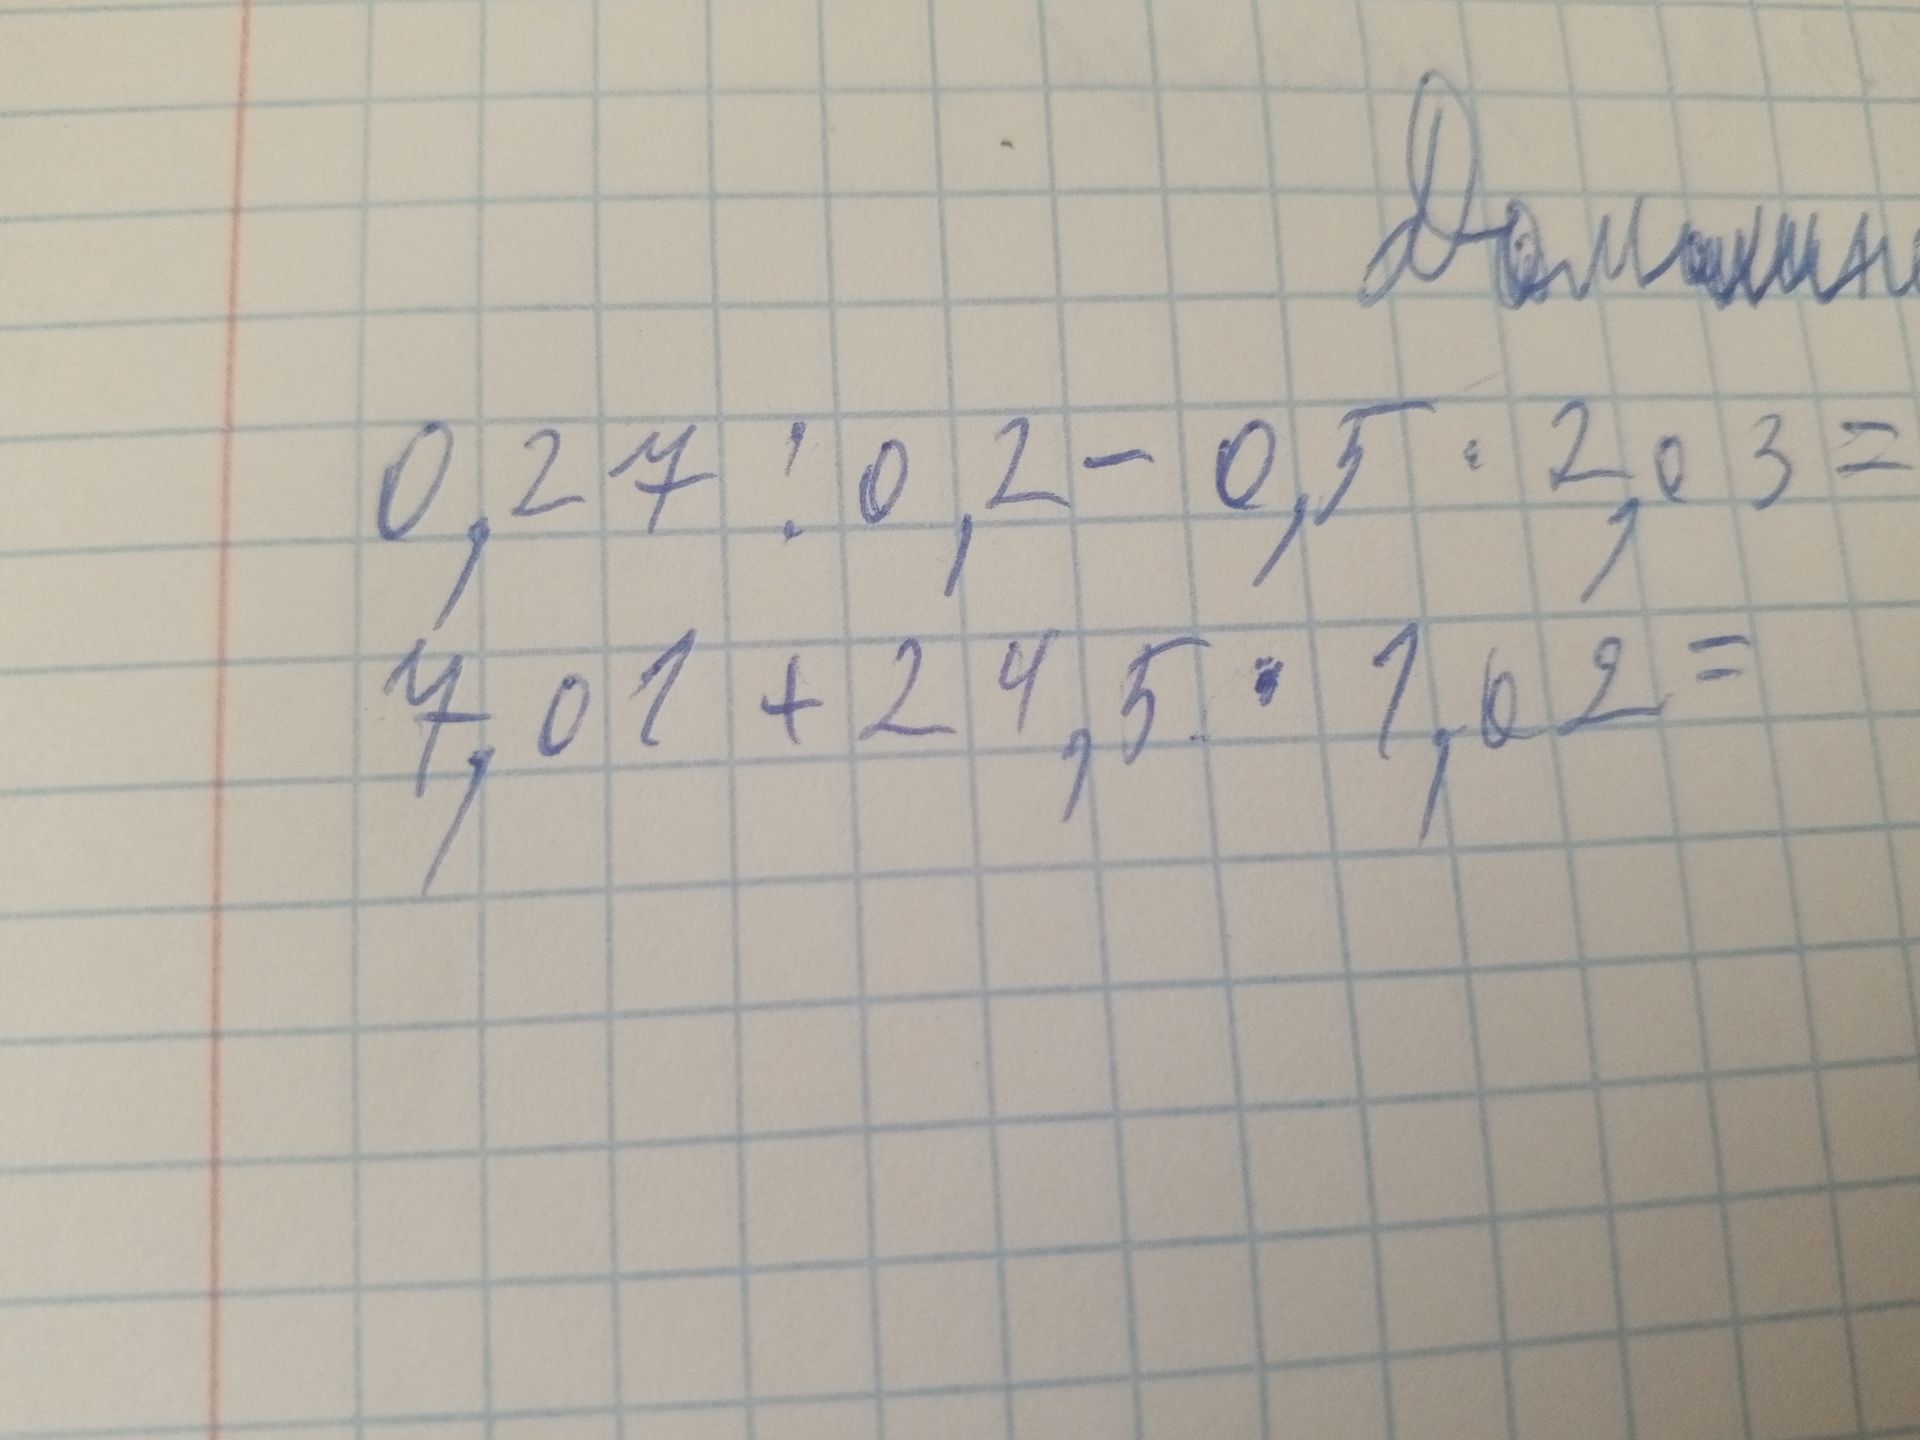 Домашн
0,27 : 0,2 - 0,5 · 2,03 =
7,01 + 24,5 · 1,02 =